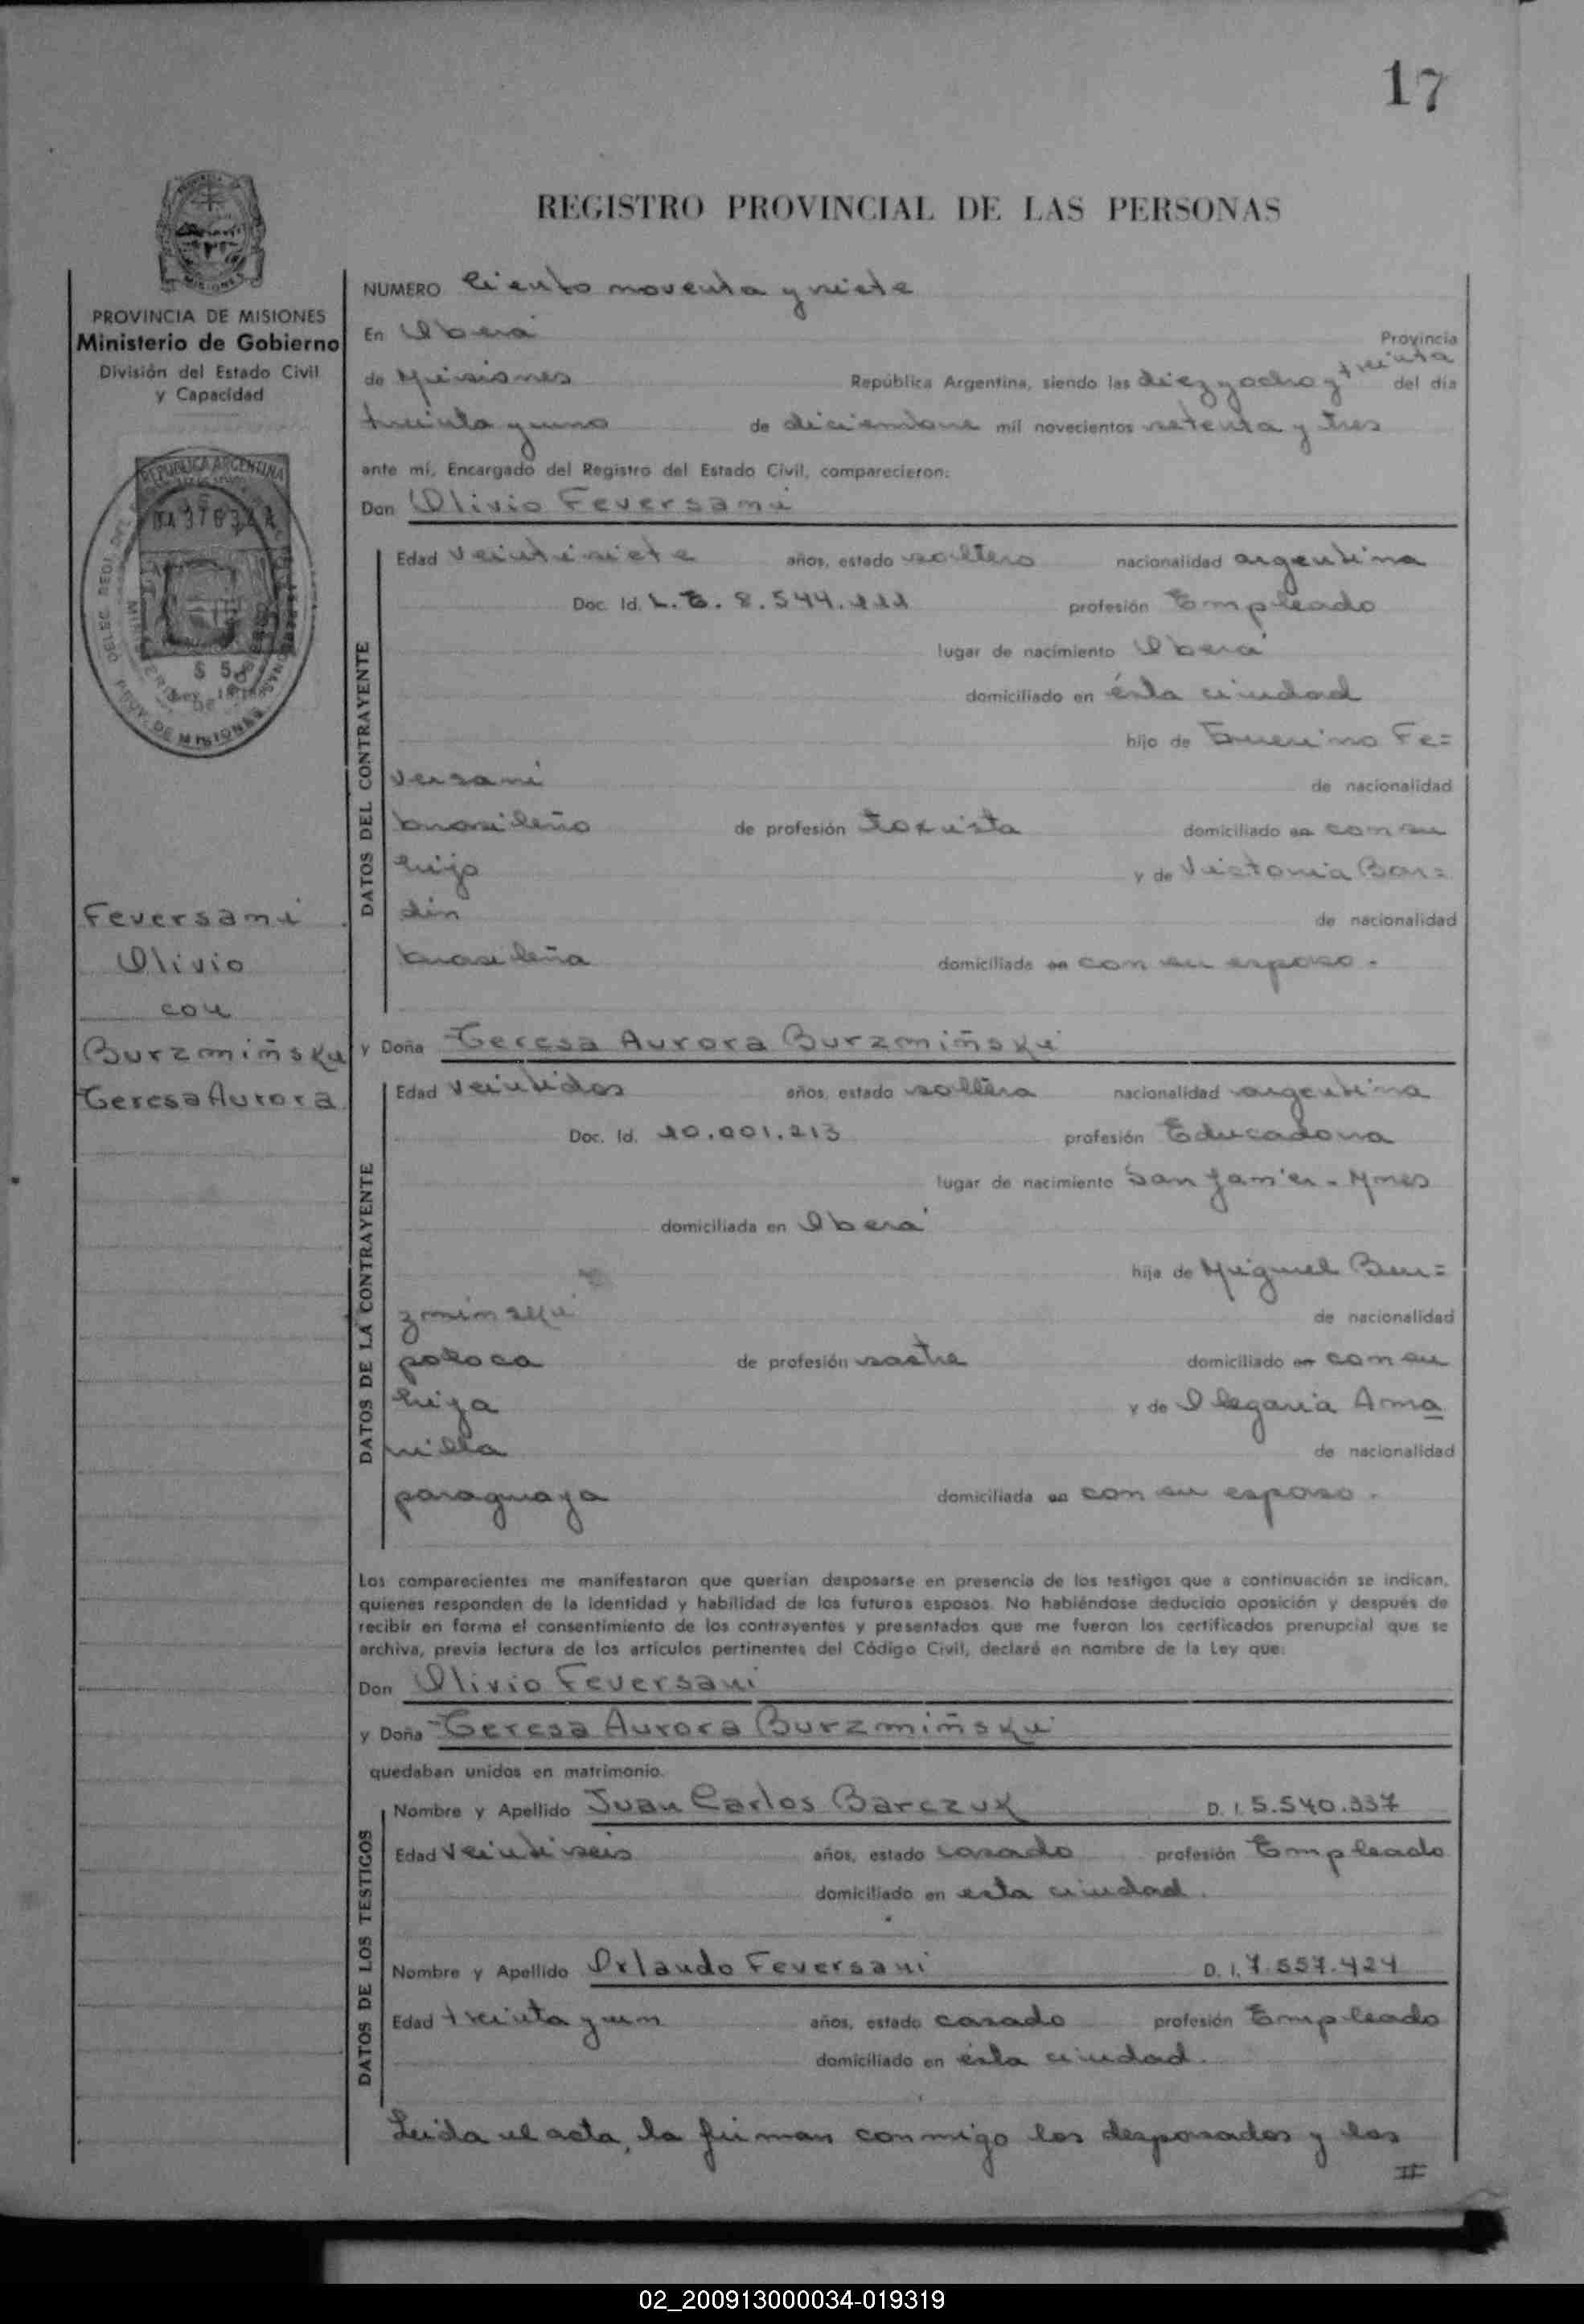 17
REGISTRO PROVINCIAL DE LAS PERSONAS
PROVINCIA DE MISIONES
Ministerio de Gobierno
División del Estado Civil
y Capacidad
REPUBLICA ARGENTINA
$ 5
PROV. DE MISIONES
Feversani
Olivio
con
Burzmiñski
Teresa Aurora
NUMERO Ciento noventa y siete
En Oberá Provincia
de Misiones República Argentina, siendo las diez y ocho y treinta del día
treinta y uno de diciembre mil novecientos setenta y tres
ante mí, Encargado del Registro del Estado Civil, comparecieron:
Don Olivio Feversani
DATOS DEL CONTRAYENTE
Edad veintisiete años, estado soltero nacionalidad argentina
Doc. Id. L.E. 8.544.111 profesión Empleado
lugar de nacimiento Oberá
domiciliado en ésta ciudad
hijo de Guerino Fe=
versani de nacionalidad
brasileño de profesión Taxista domiciliado en con su
hijo y de Victoria Bar=
din de nacionalidad
brasileña domiciliada en con su esposo.
y Doña Teresa Aurora Burzmiñski
DATOS DE LA CONTRAYENTE
Edad veintidos años, estado soltera nacionalidad argentina
Doc. Id. 10.001.213 profesión Educadora
lugar de nacimiento San Javier - Mnes
domiciliada en Oberá
hija de Miguel Bur=
zminski de nacionalidad
polaca de profesión sastre domiciliado en con su
hija y de Olegaria Arma
nilla de nacionalidad
paraguaya domiciliada en con su esposo.
Los comparecientes me manifestaron que querían desposarse en presencia de los testigos que a continuación se indican,
quienes responden de la identidad y habilidad de los futuros esposos. No habiéndose deducido oposición y después de
recibir en forma el consentimiento de los contrayentes y presentados que me fueron los certificados prenupcial que se
archiva, previa lectura de los artículos pertinentes del Código Civil, declaré en nombre de la Ley que:
Don Olivio Feversani
y Doña Teresa Aurora Burzmiñski
quedaban unidos en matrimonio.
DATOS DE LOS TESTIGOS
Nombre y Apellido Juan Carlos Barczuk D. I. 5.540.337
Edad veintiseis años, estado casado profesión Empleado
domiciliado en esta ciudad.
Nombre y Apellido Orlando Feversani D. I. 7.557.424
Edad treinta y un años, estado casado profesión Empleado
domiciliado en ésta ciudad.
Leida el acta, la firman conmigo los desposados y los
02_200913000034-019319